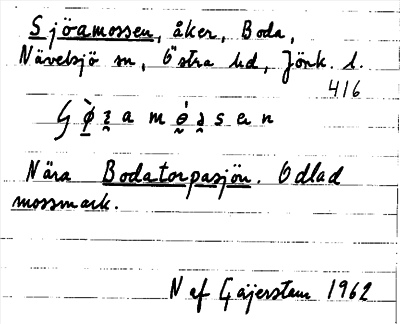 Sjöamossen, åker, Boda,
Nävelsjö sn, Östra hd, Jönk. l.
416
Nära Bodatorpasjön. Odlad
mossmark.
N af Gäijerstam 1962